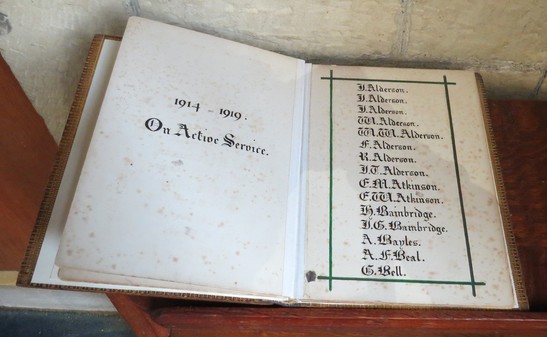 1914 - 1919.
On Active Service.
J. Alderson.
J. Alderson.
J. Alderson.
W. Alderson.
W. W. Alderson.
F. Alderson.
R. Alderson.
J. T. Alderson.
E. M. Atkinson.
E. W. Atkinson.
H. Bambridge.
J. G. Bambridge.
A. Bayles.
A. F. Beal.
G. Bell.